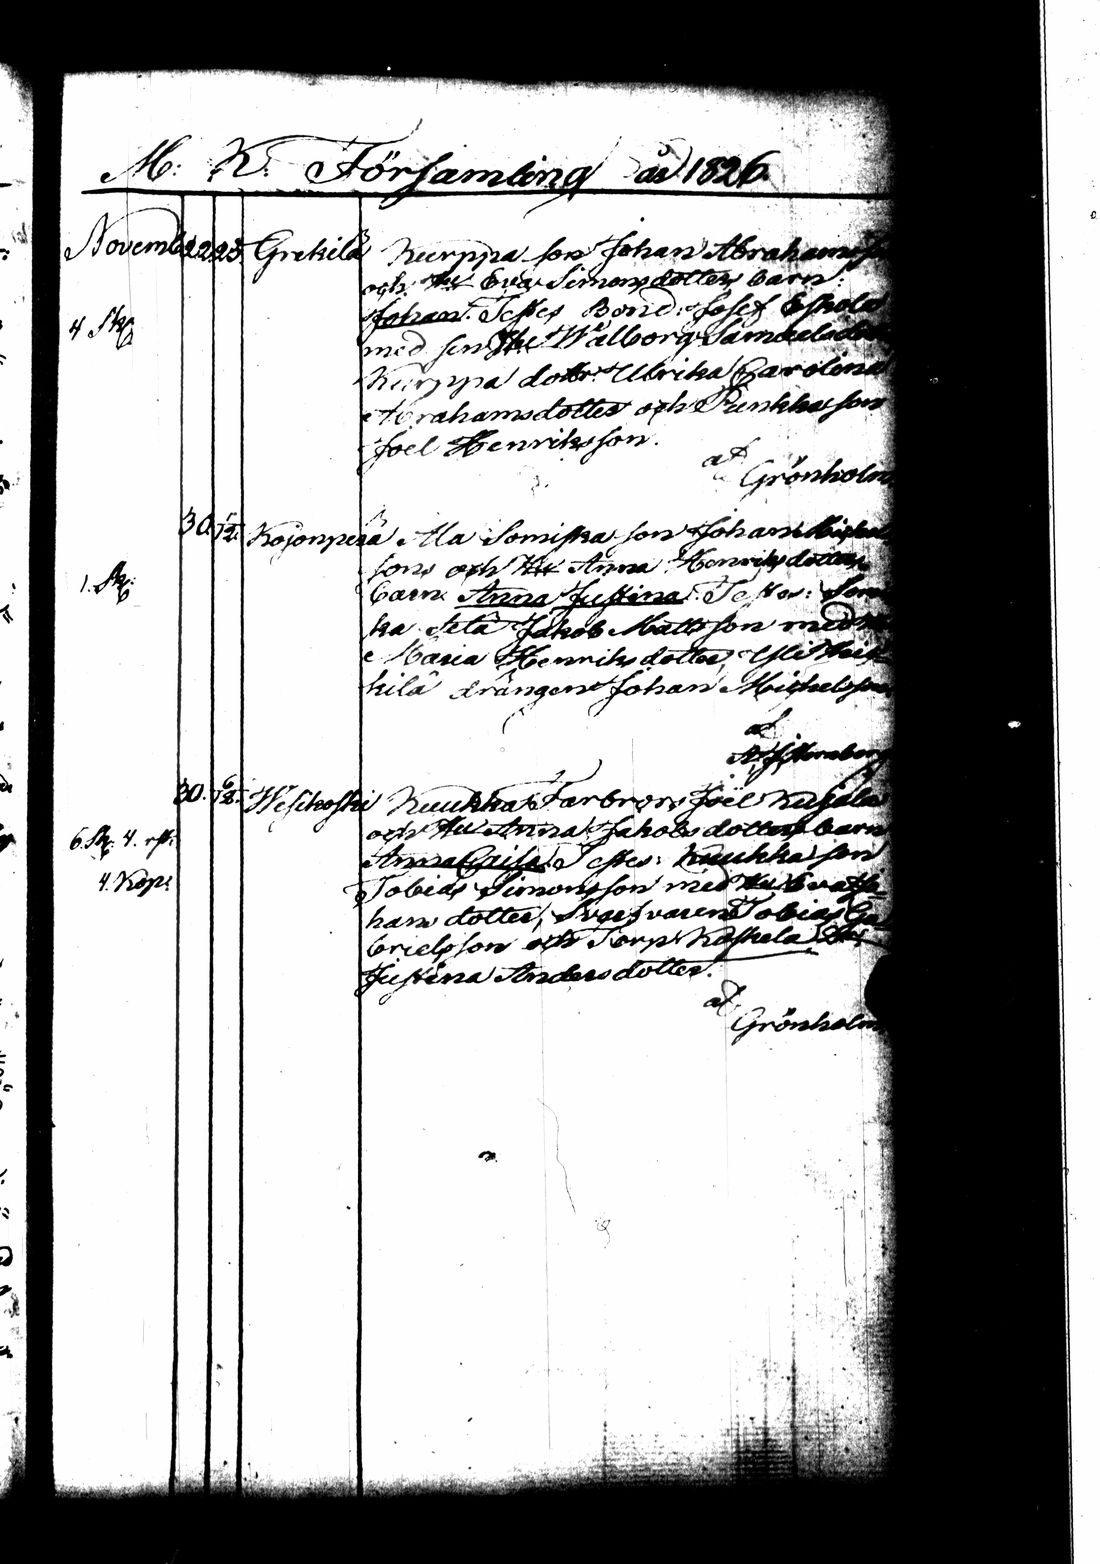 M: K. Församling år 1826.
Novemb. 22 23 Grekilä Kurppa son Johan Abrahams
och Hu Eva Simonsdotter barn:
Johan. Testes Bond: Josef Eskola
4 Sk.
med sin Hu Walborg Samuelsdotter
Kurppa dottr. Ulrika Carolina
Abrahamsdotter och Punkka son
Joel Henriksson.
af
Grönholm
30. 1/12. Kojonperä Ala Somiska son Johan Michels
sons och Hu Anna Henriksdotters
1. Sk.
barn Anna Justina. Testes:
ka Seta Jakob Mattsson med
Maria Henriksdotter,
kilä drängen Johan Michelsson
af
30. 6/12. Wesikoski Kuukka Farbrors Joel
och Hu Anna Jakobsdotters barn
6. Sk. 4. rst.
Anna Caisa. Testes: Kuukka son
4. Kop.
Tobias Simonsson med Hu Eva Jo-
hansdotter, Svagsvaren Tobias Ga
brielsson och Torp. Koskela
Justina Andersdotter.
af
Grönholm